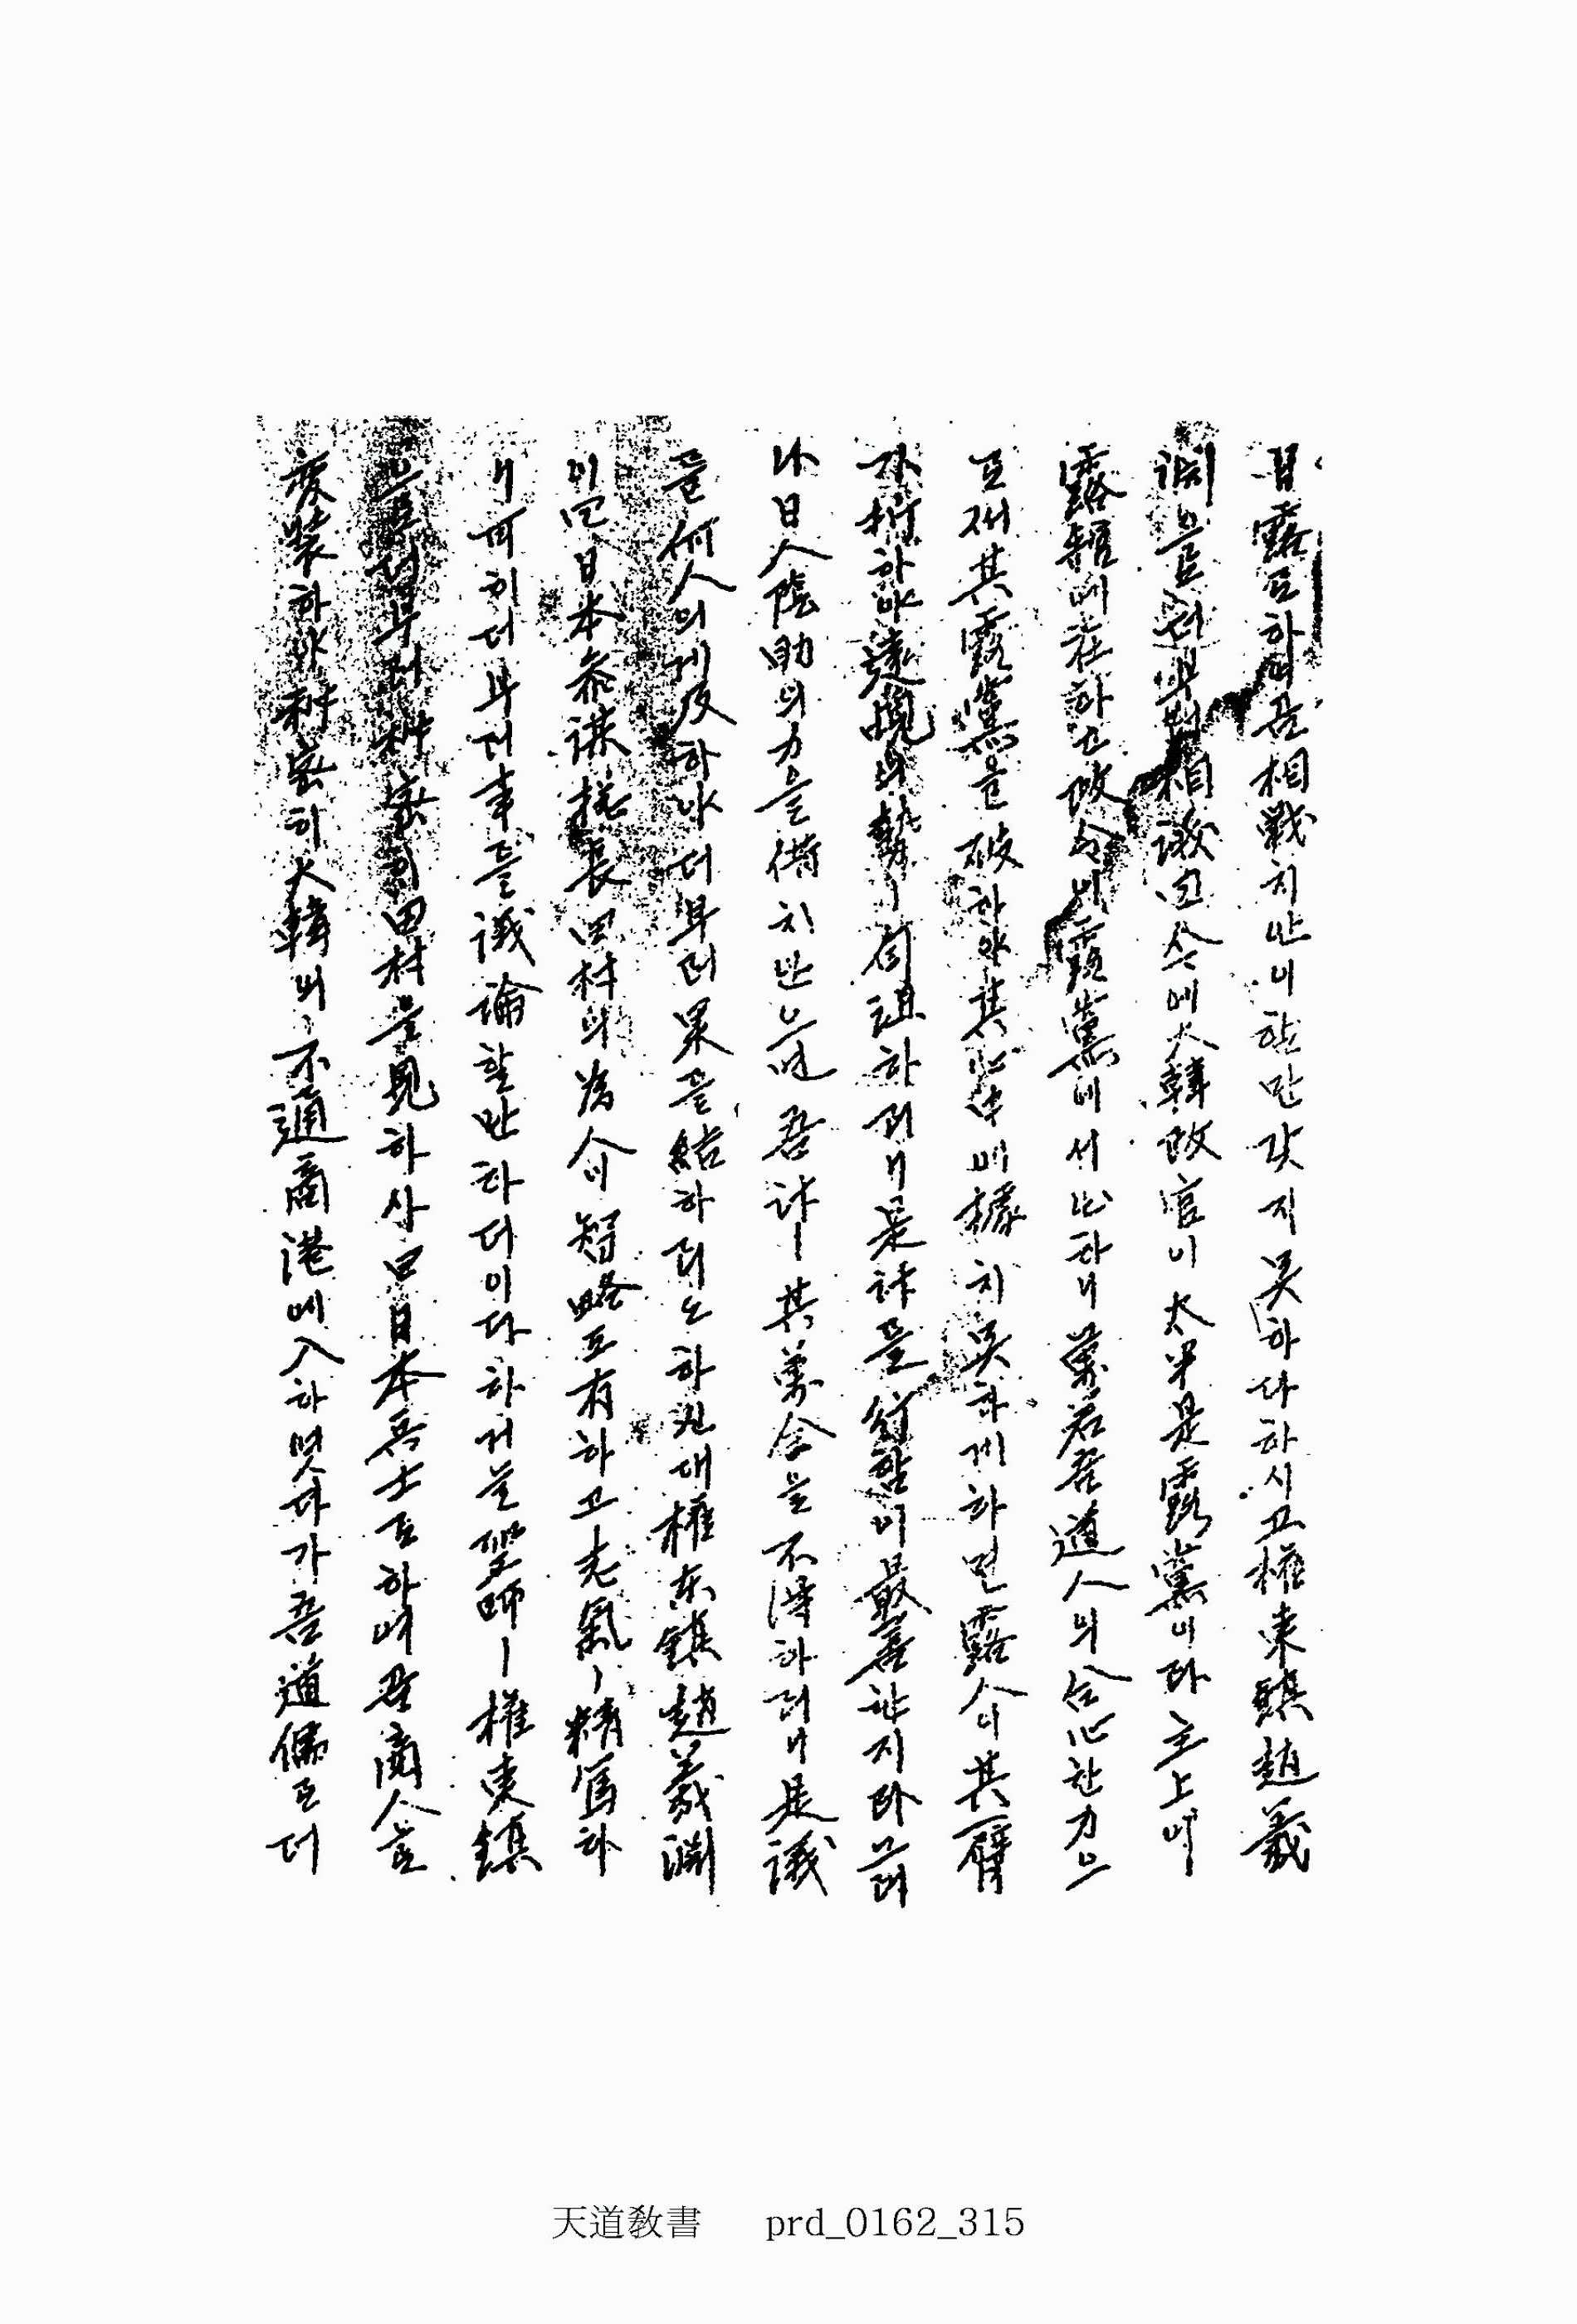 日露로하여곰相戰치안이한만갓지못하다하시고權東鎭趙羲
淵으로더부러相議曰今에大韓政官이太半是露黨이라主上이
露館에在하고政令이露黨에서出하니萬若吾道人의合心한力으
로써其露黨을破하야其 에據치못하게하면露人이其臂
가折하야 의勢ㅣ 하리니是計를行함이最善한지라그러
나日人陰助의力을借치안으면吾計ㅣ其萬全을不得하리니是議
를何人의게及하야더부러果를結하리오하신대權東鎭趙羲淵
이曰日本參謀 長田村의爲人이智略도有하고志氣ㅣ精 하
니可히더부러事를議論할만하더이다하거늘聖師ㅣ權東鎭
으로더부러 密히田村을見하사曰日本兵士로하여곰商人으로
變裝하야 密히大韓의不通商港에入하엿다가吾道儒로더
天道敎書 prd_0162_315